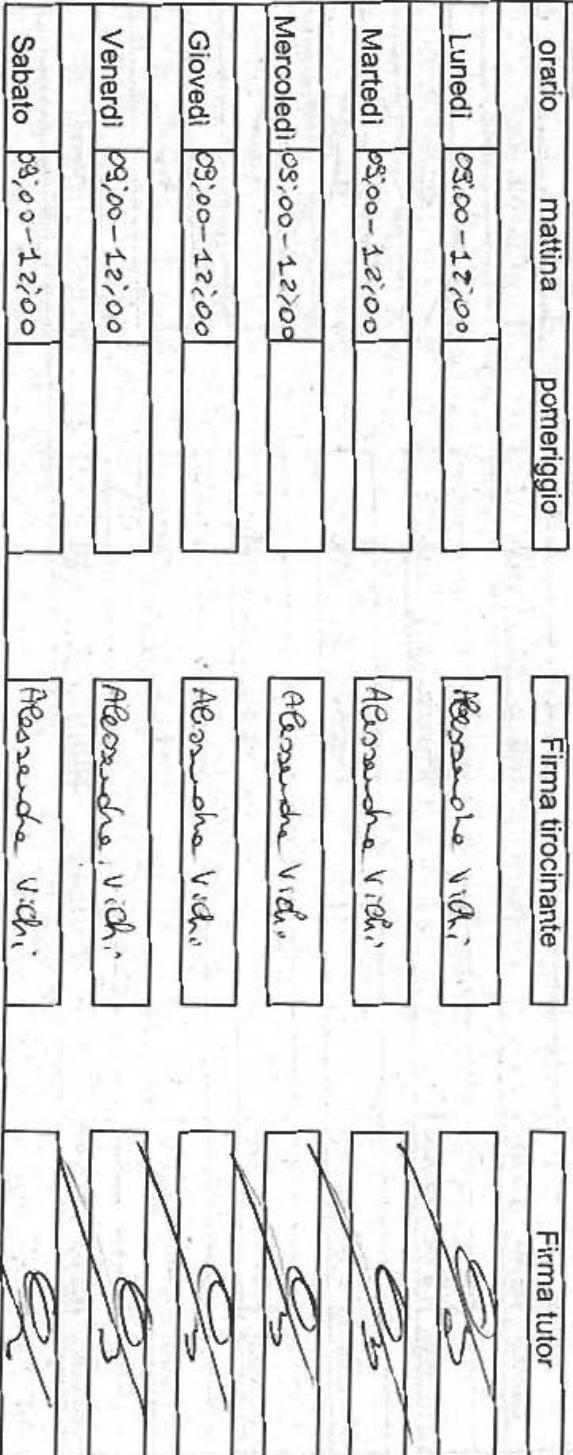 orario mattina pomeriggio Firma tirocinante Firma tutor
Lunedì 09:00-12:00 Alessandra Vichi
Martedì 09:00-12:00 Alessandra Vichi
Mercoledì 09:00-12:00 Alessandra Vichi
Giovedì 09:00-12:00 Alessandra Vichi
Venerdì 09:00-12:00 Alessandra Vichi
Sabato 09:00-12:00 Alessandra Vichi